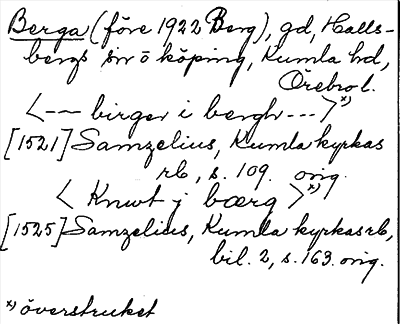 Berga (före 1922 Berg), gd, Halls-
bergs sn o köping, Kumla hd,
Örebro l.
<--- birger i bergh --->*)
[1521] Samzelius, Kumla kyrkas
rb, s. 109. orig.
<Knwt j bærg>*)
[1525] Samzelius, Kumla kyrkas rb,
bil. 2, s. 163. orig.
*) överstruket